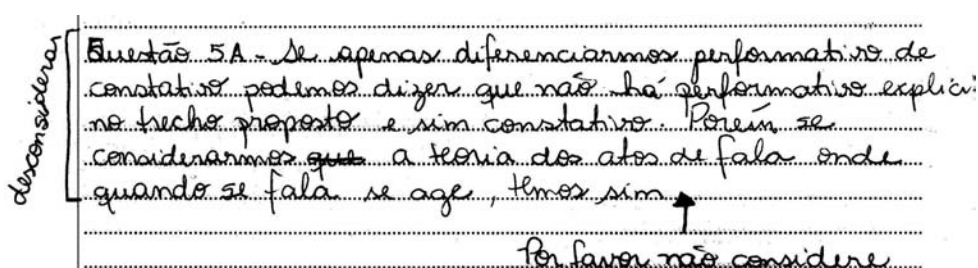 desconsiderar
Questão 5A - Se apenas diferenciarmos performativo de
constativo podemos dizer que não há performativo explíci-
no trecho proposto e sim constativo. Porém se
considerarmos que a teoria dos atos de fala onde
quando se fala se age, temos sim
Por favor não considere